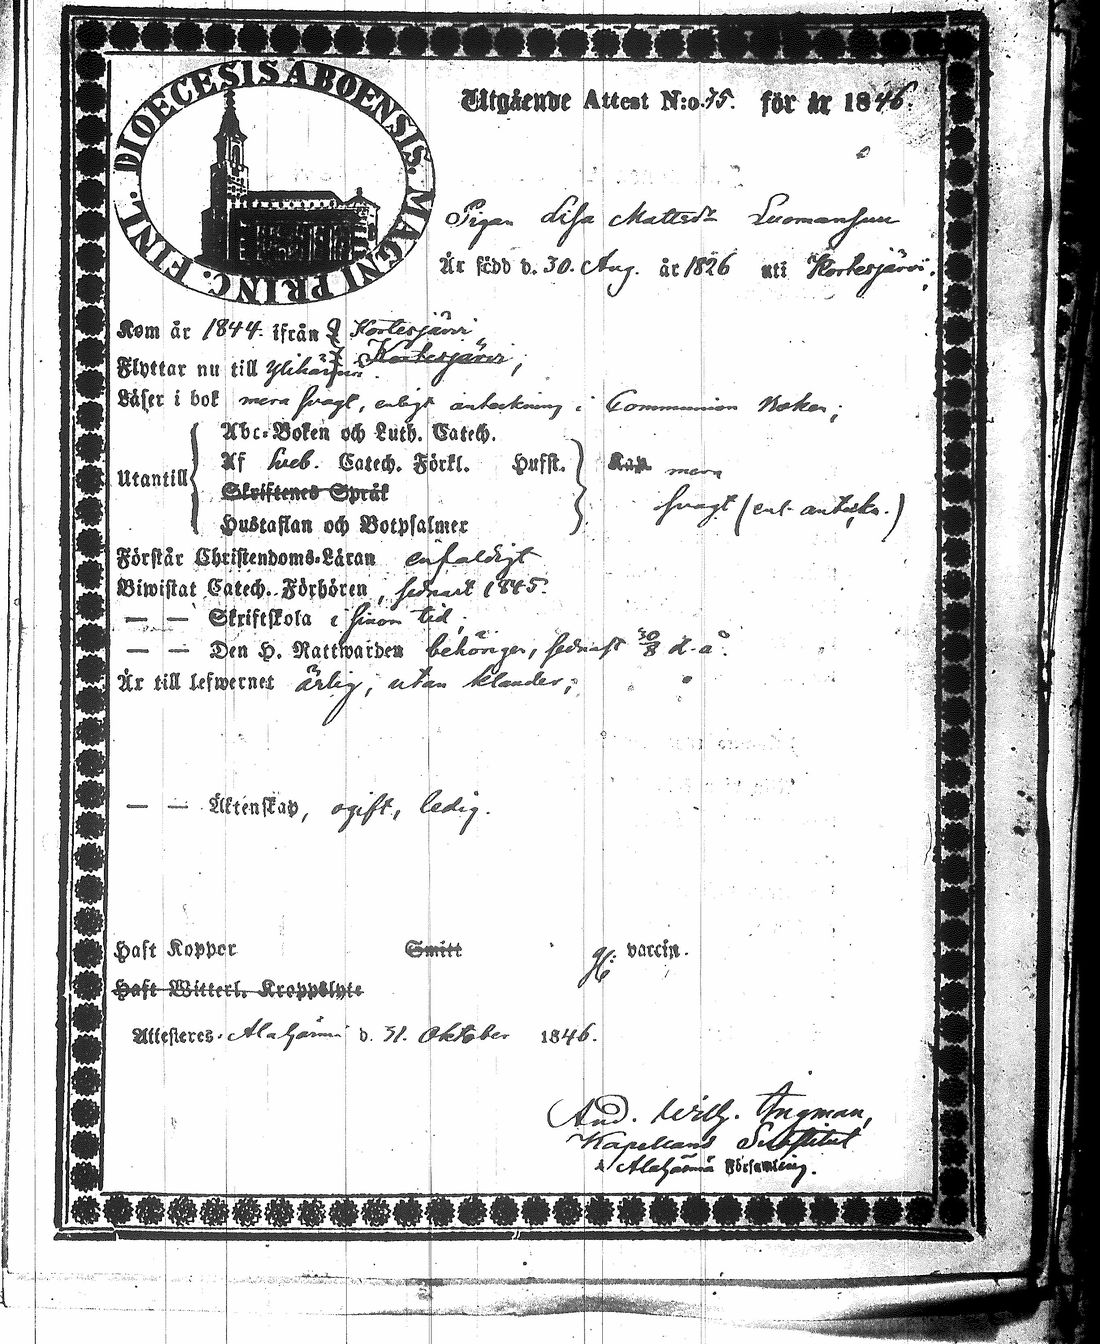 DIOECESIS ABOENSIS. MAGNI PRINC. FINL.
Utgående Attest N:o 75. för år 1846.
Pigan Lisa Mattsdr Luomansuu
Är född d. 30. Aug. år 1826 uti Kortesjärvi,
Kom år 1844. ifrån Kortesjärvi
Flyttar nu till Ylihärmä Kortesjärvi,
Läser i bok mera svagt, enligt anteckning i Communion Boken;
Abc-Boken och Luth. Catech.
Af Sveb. Catech. Förkl. Hufst. Kap. mera
Utantill
Skriftenes Språk
svagt (enl. anteckn.)
Hustaflan och Botpsalmer
Förstår Christendoms-Läran enfaldigt
Biwistat Catech. Förhören, sednast 1845.
— — Skriftskola i sinom tid,
— — Den H. Nattwarden behörigen, sednast 30/8 d. å.
Är till lefwernet ärlig, utan klander;
— — Äktenskap, ogift, ledig.
Haft Koppor Smitt g: vaccin.
Haft Witterl. Kroppslyte
Attesteras. Alahärmä d. 31. Oktober 1846.
And. Wilh. Ingman,
Kapellans Substitut
i Alahärmä Församling.